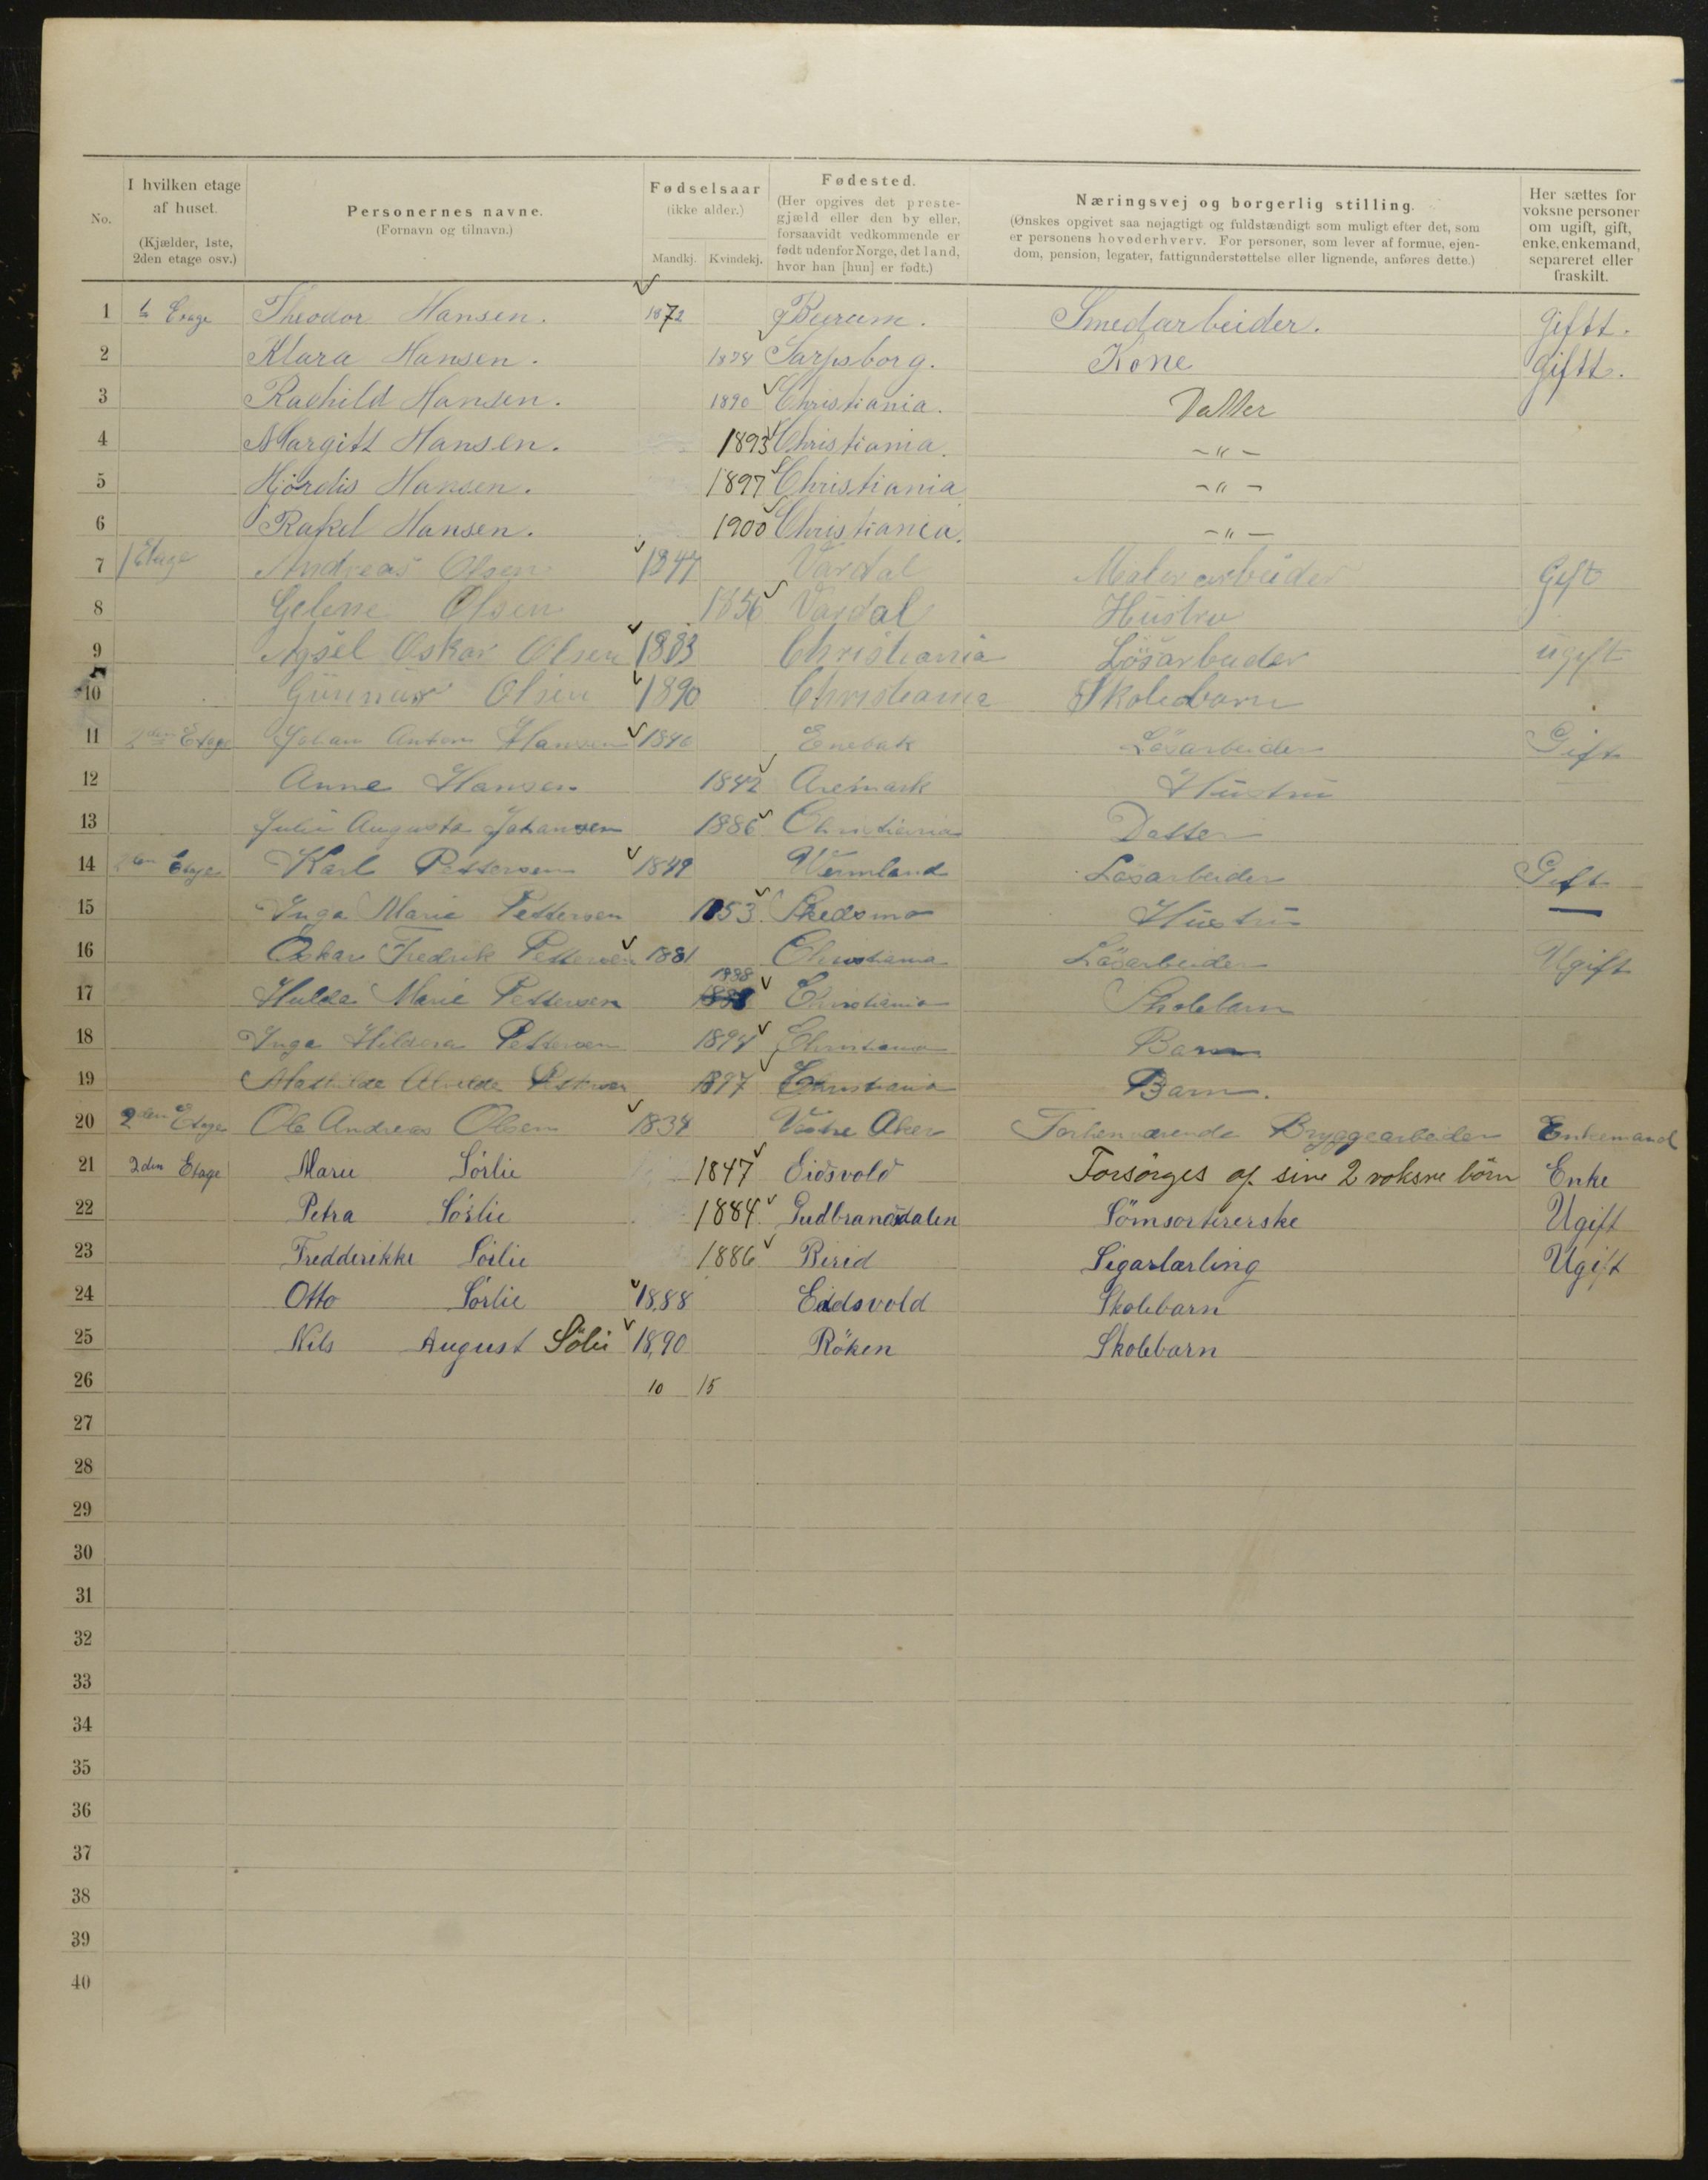 No.
I hvilken etage af huset. (Kjælder, 1ste, 2den etage osv.)
Personernes navne. (Fornavn og tilnavn.)
Fødselsaar (ikke alder.) Mandkj. Kvindekj.
Fødested. (Her opgives det prestegjæld eller den by eller, forsaavidt vedkommende er født udenfor Norge, det land, hvor han [hun] er født.)
Næringsvej og borgerlig stilling. (Ønskes opgivet saa nøjagtigt og fuldstændigt som muligt efter det, som er personens hovederhverv. For personer, som lever af formue, ejendom, pension, legater, fattigunderstøttelse eller lignende, anføres dette.)
Her sættes for voksne personer om ugift, gift, enke, enkemand, separeret eller fraskilt.
1 Etage Theodor Hansen. 1872 Bærum. Smedarbeider. Giftt.
2 Klara Hansen. 1874 Sarpsborg. Kone Giftt.
3 Raghild Hansen. 1890 Christiania. Datter
4 Margitt Hansen. 1893 Christiania. -"-
5 Hjørdis Hansen. 1897 Christiania -"-
6 Rakel Hansen. 1900 Christiania. -"-
7 1 Etage Andreas Olsen 1847 Vardal Malerarbeider Gift
8 Gelene Olsen 1856 Vardal Hustru
9 Agsel Oskar Olsen 1883 Christiania Lösarbeider ugift
10 Gunnar Olsen 1890 Christiania Skolebarn
11 2den Etage Johan Anton Hansen 1840 Enebak Lösarbeider Gift
12 Anne Hansen 1842 Aremark Hustru
13 Julie Augusta Johansen 1886 Christiania Datter
14 2den Etage Karl Pettersen 1849 Wermland Lösarbeider Gift
15 Inga Marie Pettersen 1853 Skedsmo Hustru —
16 Oskar Fredrik Pettersen 1881 Christiania Lösarbeider Ugift
17 Hulda Marie Pettersen 1888 Christiania Skolebarn
18 Inga Pettersen 1894 Christiania Barn
19 Mathilde Alvilde Pettersen 1897 Christiania Barn.
20 2den Etage Ole Andreas Olsen 1834 Vestre Aker Forhenværende Bryggearbeider Enkemand
21 2den Etage Marie Sörlie 1847 Eidsvold Forsörges af sine 2 voksne börn Enke
22 Petra Sörlie 1884 Gudbrandsdalen Sömsortererske Ugift
23 Fredderikke Sörlie 1886 Birid Sigarlærling Ugift
24 Otto Sörlie 1888 Eidsvold Skolebarn
25 Nils August Sölie 1890 Röken Skolebarn
26 10 15
27
28
29
30
31
32
33
34
35
36
37
38
39
40